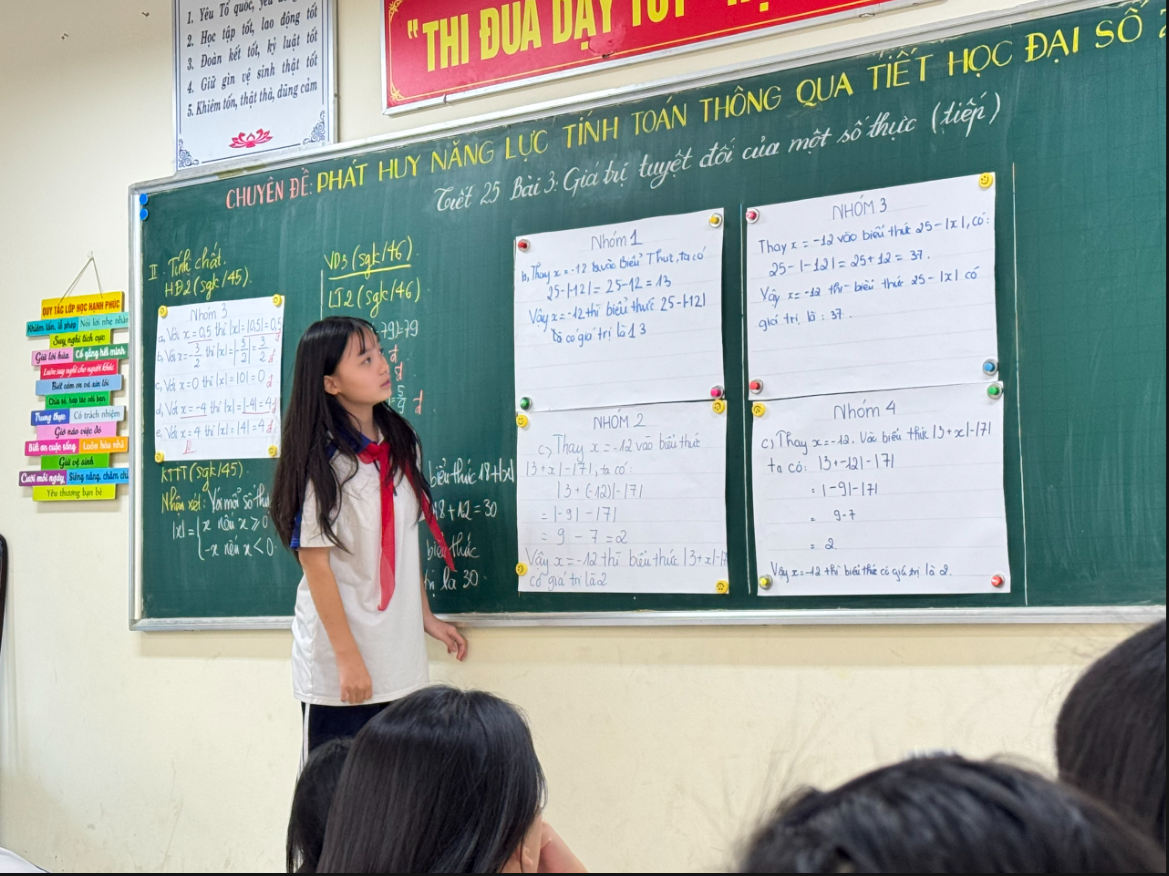 1. Yêu Tổ quốc, yêu
2. Học tập tốt, lao động tốt
3. Đoàn kết tốt, kỷ luật tốt
4. Giữ gìn vệ sinh thật tốt
5. Khiêm tốn, thật thà, dũng cảm
"THI ĐUA DẠY TỐT
CHUYÊN ĐỀ: PHÁT HUY NĂNG LỰC TÍNH TOÁN THÔNG QUA TIẾT HỌC ĐẠI SỐ
Tiết 25 Bài 3: Giá trị tuyệt đối của một số thực (tiếp)
QUY TẮC LỚP HỌC HẠNH PHÚC
Khiêm tốn, lễ phép Nói lời nhẹ nhàn
Suy nghĩ tích cực
Giữ lời hứa Cố gắng hết mình
Luôn suy nghĩ cho người khác
Biết cảm ơn và xin lỗi
Chia sẻ, hợp tác với bạn
Trung thực Có trách nhiệm
Giờ nào việc đó
Biết ơn cuộc sống Luôn hòa nhã
Giữ vệ sinh
Cười mỗi ngày Siêng năng, chăm chỉ
Yêu thương bạn bè
II. Tính chất.
HĐ2 (sgk/45).
Nhóm 3
a, Với x = 0,5 thì |x| = |0,5| = 0,5 đ
b, Với x = -3/2 thì |x| = |-3/2| = 3/2 đ
c, Với x = 0 thì |x| = |0| = 0 đ
d, Với x = -4 thì |x| = |-4| = 4 đ
e, Với x = 4 thì |x| = |4| = 4 đ
KTTT (sgk/45).
Nhận xét: Với mọi số th
|x| = { x nếu x ≥ 0
-x nếu x < 0
VD3 (sgk/46)
LT2 (sgk/46)
79| = 79
đ
đ
= 5/9 đ
biểu thức 18 + |x|
18 + 12 = 30
biểu thức
trị là 30.
Nhóm 1
b, Thay x = -12 vào Biểu Thức, ta có
25 - |-12| = 25 - 12 = 13
Vậy x = -12 thì biểu thức 25 - |-12|
có giá trị là 13
NHÓM 2
c) Thay x = -12 vào biểu thức
|3 + x| - |7|, ta có:
|3 + (-12)| - |7|
= |-9| - |7|
= 9 - 7 = 2
Vậy x = -12 thì biểu thức |3 + x| - |7|
có giá trị là 2
NHÓM 3
Thay x = -12 vào biểu thức 25 - |x|, có:
25 - |-12| = 25 + 12 = 37.
Vậy x = -12 thì biểu thức 25 - |x| có
giá trị là : 37.
Nhóm 4
c) Thay x = -12. Vào biểu thức |3 + x| - |7|
ta có: |3 + -12| - |7|
= |-9| - |7|
= 9 - 7
= 2
Vậy x = -12 thì biểu thức có giá trị là 2.